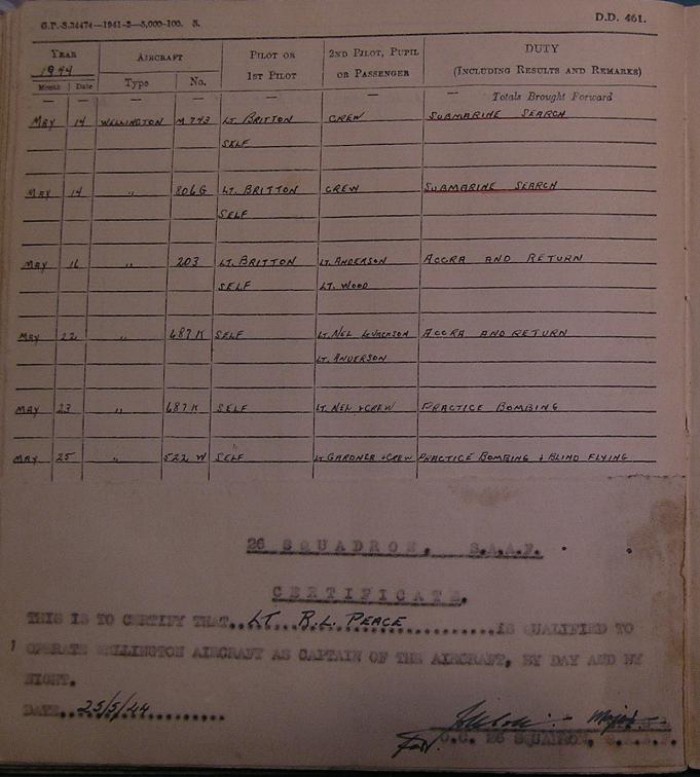 G.P.-S.34474—1941-2—5,000-100. S.
D.D. 461.
YEAR AIRCRAFT PILOT OR 2ND PILOT, PUPIL DUTY
1944 Type No. 1ST PILOT OR PASSENGER (INCLUDING RESULTS AND REMARKS)
Month Date
— — — — — — — Totals Brought Forward
MAY 14 WELLINGTON M 793 LT BRITTON CREW SUBMARINE SEARCH
SELF
MAY 14 " 806 G LT. BRITTON CREW SUBMARINE SEARCH
SELF
MAY 16 " 203 LT. BRITTON LT. ANDERSON ACCRA AND RETURN
SELF LT. WOOD
MAY 22 " 687 K SELF LT. NEL ACCRA AND RETURN
LT. ANDERSON
MAY 23 " 687 K SELF LT. NEL + CREW PRACTICE BOMBING
MAY 25 " 522 W SELF LT GARDNER + CREW PRACTICE BOMBING + BLIND FLYING
26 SQUADRON. S.A.A.F.
CERTIFICATE.
THIS IS TO CERTIFY THAT..LT. R.L. PEACE..................IS QUALIFIED TO
OPERATE WELLINGTON AIRCRAFT AS CAPTAIN OF THE AIRCRAFT, BY DAY AND BY
NIGHT.
DATE..25/5/44..............
Major
For. O.C. 26 SQUADRON, S.A.A.F.